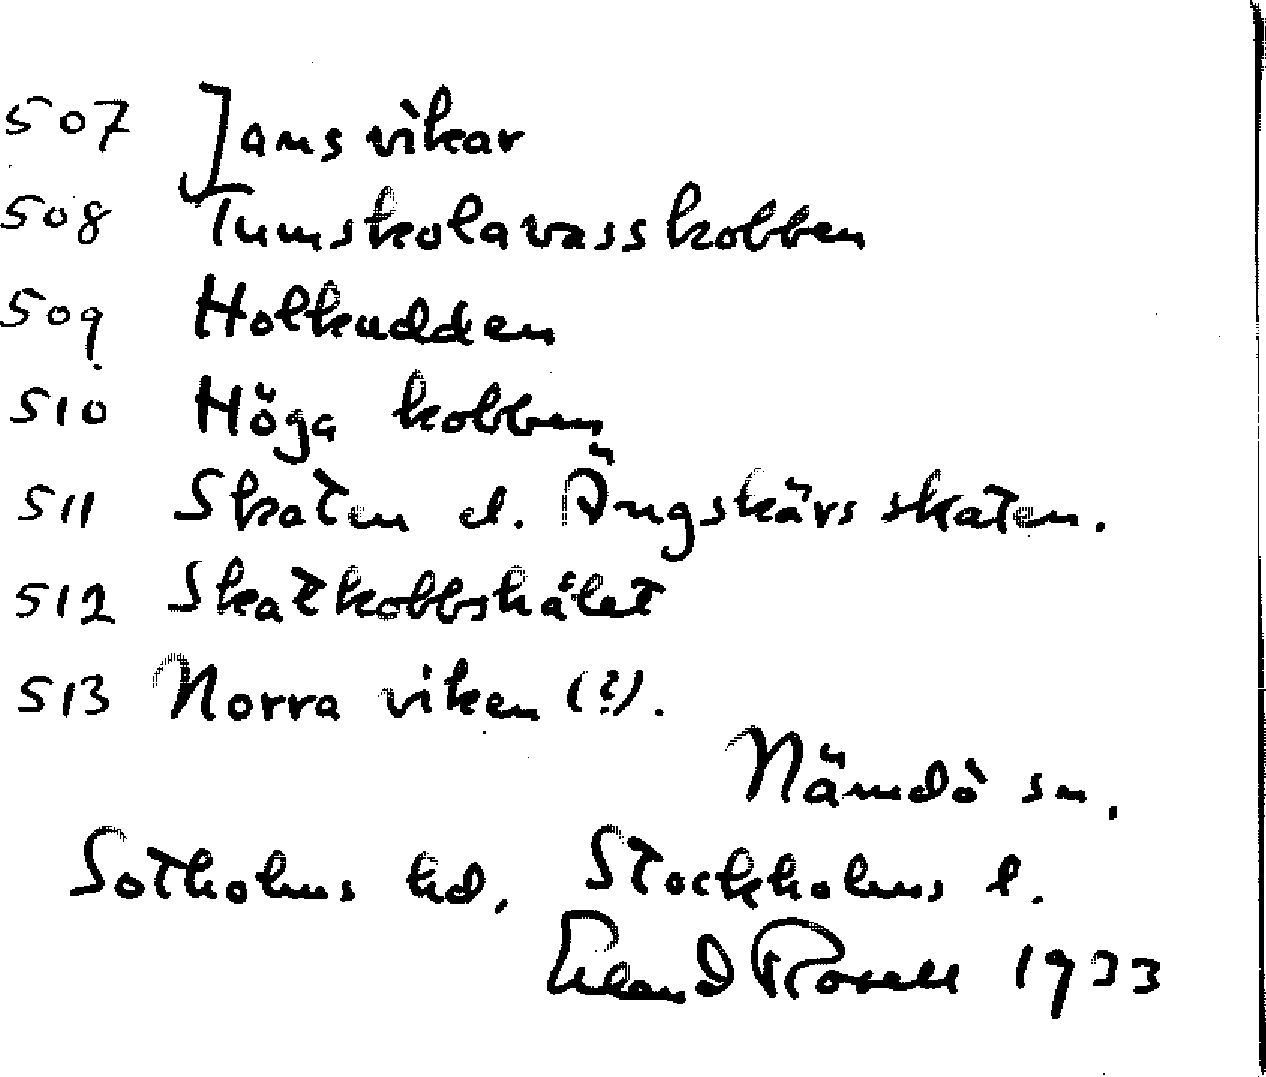 507 Jansvikar
508 Tumskolavasskobben
509 Holkudden
510 Höga kobben
511 Skaten el. Ängskärsskaten.
512 Skatkobbshålet
513 Norra viken (?).
Nämdö sn.
Sotholms hd. Stockholms l.
Erland Rosell 1933